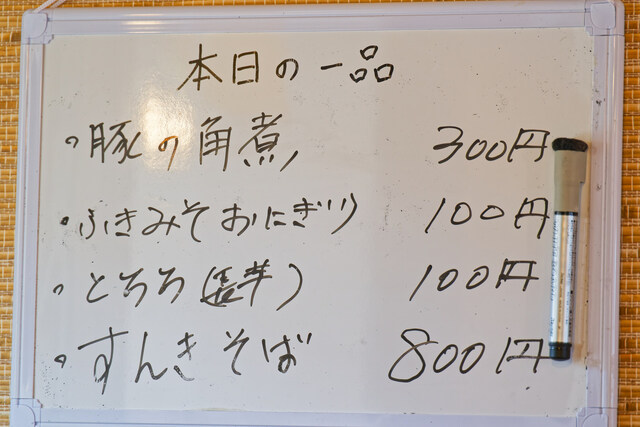 本日の一品
・豚の角煮 300円
・ふきみそおにぎり 100円
・とろろ(長芋) 100円
・すんきそば 800円